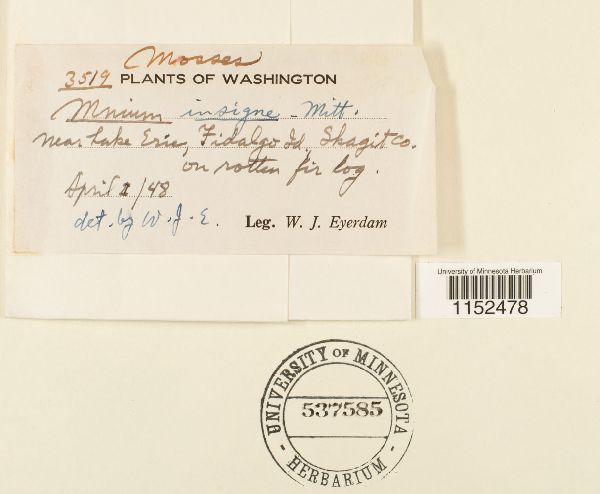 Mosses
3519 PLANTS OF WASHINGTON
Mnium insigne - Mitt.
near Lake Erie, Fidalgo Id, Skagit Co.
on rotten fir log.
April 1/48
det. by W. J. E. Leg. W. J. Eyerdam
University of Minnesota Herbarium
1152478
UNIVERSITY OF MINNESOTA
537585
- HERBARIUM -